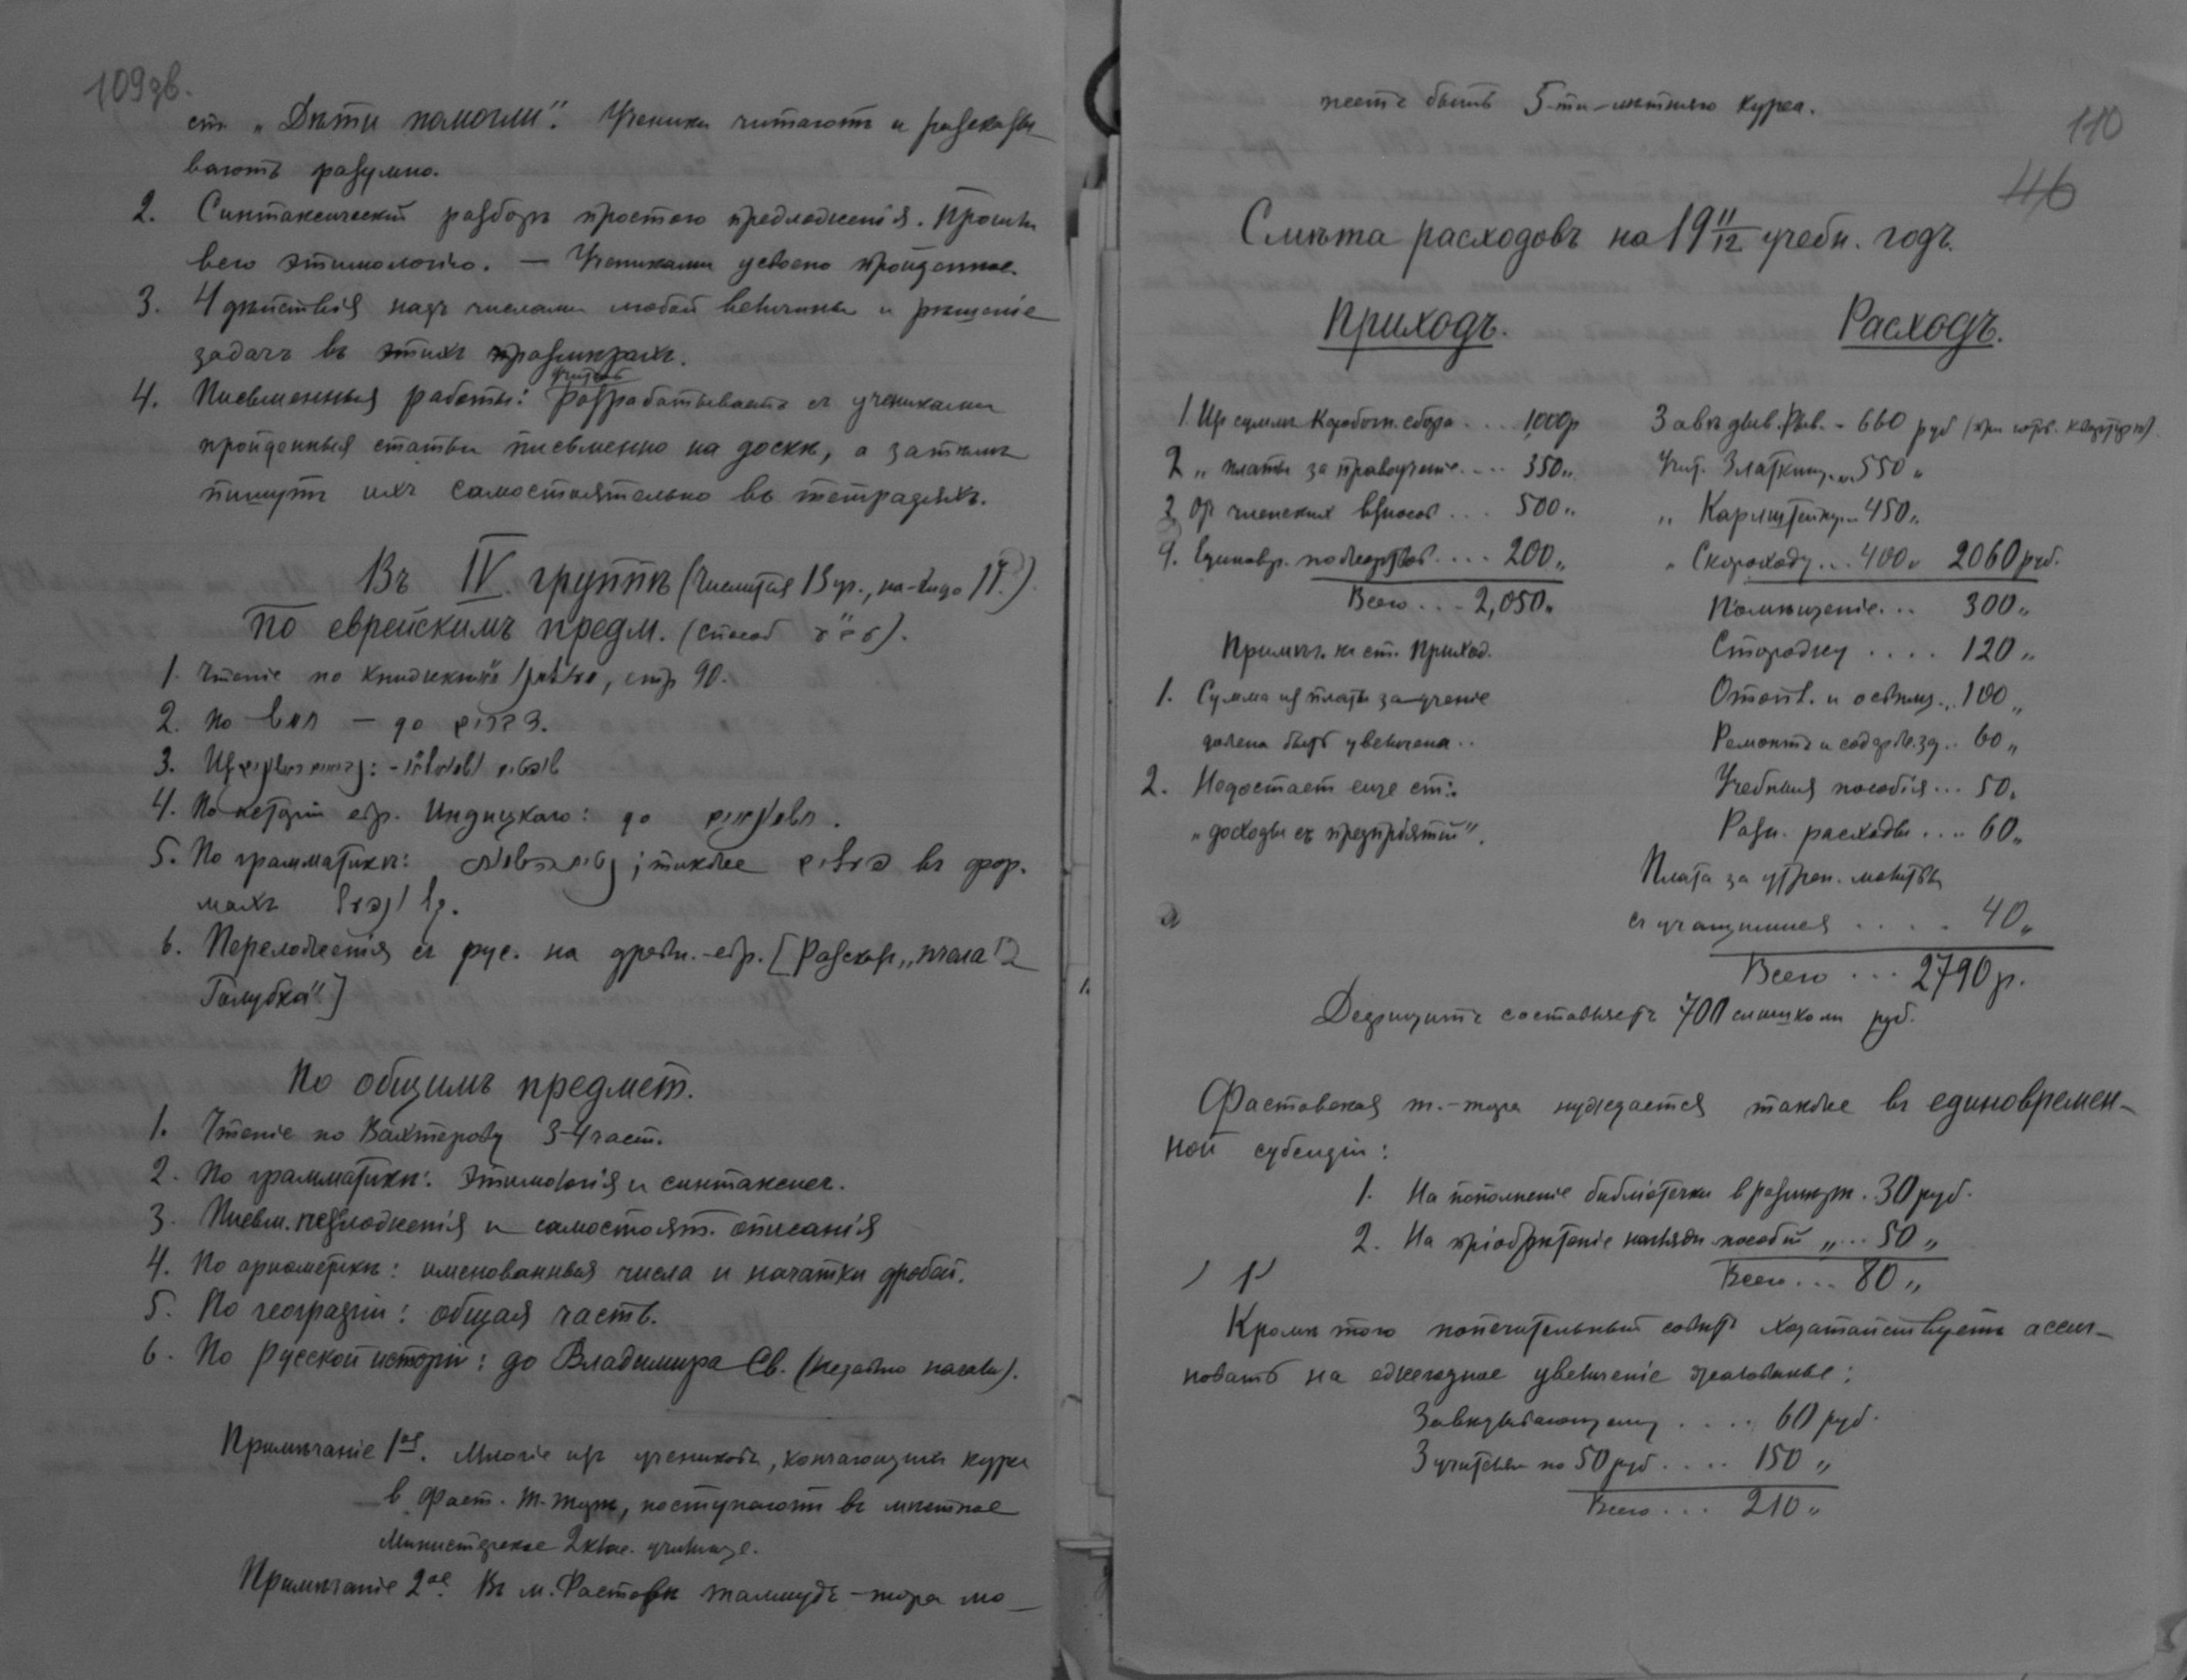 109зв.
ст. „Дѣти помогли“. Ученики читаютъ и разсказы-
ваютъ разумно.
2. Синтаксическій разборъ простого предложенія. Прошли
всю этимологію. — Учениками усвоено пройденное.
3. 4 дѣйствія надъ числами любой величины и рѣшеніе
задачъ въ этихъ предѣлахъ.
учитель
4. Письменныя работы: разрабатываетъ съ учениками
пройденныя статьи письменно на доскѣ, а затѣмъ
пишутъ ихъ самостоятельно въ тетрадяхъ.
Въ IV группѣ (числится 13 уч., на-лицо 11.)
По еврейскимъ предм. (способ עב״ע).
1. Чтеніе по книжкѣ, стр 90.
2. По — до
3. Из
4. По исторіи евр. Индицкаго: до
5. По грамматикѣ: ; также въ фор-
махъ
6. Переложенія съ рус. на древн.-евр. [Разсказъ „пчела и
Голубка“]
По общимъ предмет.
1. Чтеніе по Вахтерову 3-4 част.
2. По грамматикѣ: этимологія и синтаксисъ.
3. Письм. изложенія и самостоят. описанія
4. По ариѳметикѣ: именованныя числа и начатки дробей.
5. По географіи: общая часть.
6. По русской исторіи: до Владимира Св. (недавно начали).
Примѣчаніе 1ое. Многіе изъ учениковъ, кончающихъ курсъ
в Фаст. т.-торѣ, поступаютъ въ мѣстное
Министерское 2 клас. училище.
Примѣчаніе 2ое. Въ м. Фастовѣ талмудъ-тора мо-
жетъ быть 5-ти-лѣтняго курса.
110
46
Смѣта расходовъ на 19 11/12 учебн. годъ.
Приходъ.
1. Из суммъ Коробочн. сбора .... 1000р
2 „ платы за правоученіе .... 350„
3 От членских взносов ... 500„
4. Единовр. пожертвов .... 200„
Всего ... 2,050„
Примѣч. къ ст. Приход.
1. Сумма из платы за ученіе
должна быть увеличена..
2. Недостает еще ст.:
„доходы съ предпріятій“.
Расходъ.
Завѣдыв. - 660 руб (при готов. квартирѣ).
Учит. Златкину... 550„
„ Карлштейну... 450„
„ Скороходу... 400„ 2060 руб.
Помѣщеніе... 300„
Сторожу .... 120„
Отопл. и освѣщ... 100„
Ремонтъ и содерж. зд.. 60„
Учебныя пособія... 50„
Разн. расходы .... 60„
Плата за утрен. молитвы
съ учащимися ..... 40„
Всего ... 2790 р.
Дефицитъ составляетъ 700 слишкомъ руб.
Фастовская т.-тора нуждается также въ единовремен-
ной субсидіи:
1. На пополненіе библіотечки в размѣрѣ. 30 руб.
2. На пріобрѣтеніе наглядн. пособій „... 50„
Всего ... 80„
Кромѣ того попечительный совѣтъ ходатайствуетъ ассиг-
новать на ежегодное увеличеніе жалованье:
Завѣдывающему ..... 60 руб.
3 учителям по 50 руб .... 150„
Всего ... 210„